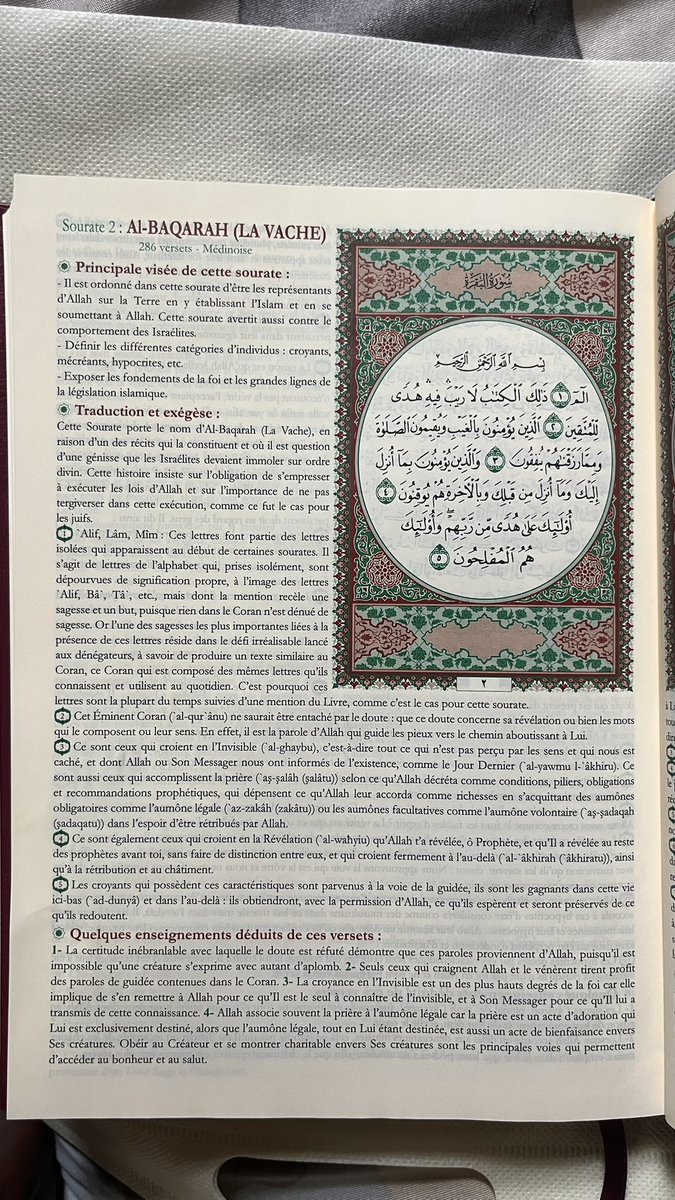 Sourate 2 : Al-BAQARAH (LA VACHE)
286 versets - Médinoise
Principale visée de cette sourate :
- Il est ordonné dans cette sourate d’être les représentants
d’Allah sur la Terre en y établissant l’Islam et en se
soumettant à Allah. Cette sourate avertit aussi contre le
comportement des Israélites.
- Définir les différentes catégories d’individus : croyants,
mécréants, hypocrites, etc.
- Exposer les fondements de la foi et les grandes lignes de
la législation islamique.
Traduction et exégèse :
Cette Sourate porte le nom d’Al-Baqarah (La Vache), en
raison d’un des récits qui la constituent et où il est question
d’une génisse que les Israélites devaient immoler sur ordre
divin. Cette histoire insiste sur l’obligation de s’empresser
à exécuter les lois d’Allah et sur l’importance de ne pas
tergiverser dans cette exécution, comme ce fut le cas pour
les juifs.
1 `Alif, Lâm, Mîm : Ces lettres font partie des lettres
isolées qui apparaissent au début de certaines sourates. Il
s’agit de lettres de l’alphabet qui, prises isolément, sont
dépourvues de signification propre, à l’image des lettres
`Alif, Bâ`, Tâ`, etc., mais dont la mention recèle une
sagesse et un but, puisque rien dans le Coran n’est dénué de
sagesse. Or l’une des sagesses les plus importantes liées à la
présence de ces lettres réside dans le défi irréalisable lancé
aux dénégateurs, à savoir de produire un texte similaire au
Coran, ce Coran qui est composé des mêmes lettres qu’ils
connaissent et utilisent au quotidien. C’est pourquoi ces
lettres sont la plupart du temps suivies d’une mention du Livre, comme c’est le cas pour cette sourate.
2 Cet Éminent Coran (`al-qur`ânu) ne saurait être entaché par le doute : que ce doute concerne sa révélation ou bien les mots
qui le composent ou leur sens. En effet, il est la parole d’Allâh qui guide les pieux vers le chemin aboutissant à Lui.
3 Ce sont ceux qui croient en l’Invisible (`al-ghaybu), c’est-à-dire tout ce qui n’est pas perçu par les sens et qui nous est
caché, et dont Allah ou Son Messager nous ont informés de l’existence, comme le Jour Dernier (`al-yawmu l-`âkhiru). Ce
sont aussi ceux qui accomplissent la prière (`aṣ-ṣalâh (ṣalâtu)) selon ce qu’Allah décréta comme conditions, piliers, obligations
et recommandations prophétiques, qui dépensent ce qu’Allah leur accorda comme richesses en s’acquittant des aumônes
obligatoires comme l’aumône légale (`az-zakâh (zakâtu)) ou les aumônes facultatives comme l’aumône volontaire (`aṣ-ṣadaqah
(ṣadaqatu)) dans l’espoir d’être rétribués par Allah.
4 Ce sont également ceux qui croient en la Révélation (`al-waḥyiu) qu’Allah t’a révélée, ô Prophète, et qu’Il a révélée au reste
des prophètes avant toi, sans faire de distinction entre eux, et qui croient fermement à l’au-delà (`al-`âkhirah (`âkhiratu)), ainsi
qu’à la rétribution et au châtiment.
5 Les croyants qui possèdent ces caractéristiques sont parvenus à la voie de la guidée, ils sont les gagnants dans cette vie
ici-bas (`ad-dunyâ) et dans l’au-delà : ils obtiendront, avec la permission d’Allah, ce qu’ils espèrent et seront préservés de ce
qu’ils redoutent.
Quelques enseignements déduits de ces versets :
1- La certitude inébranlable avec laquelle le doute est réfuté démontre que ces paroles proviennent d’Allah, puisqu’il est
impossible qu’une créature s’exprime avec autant d’aplomb. 2- Seuls ceux qui craignent Allah et le vénèrent tirent profit
des paroles de guidée contenues dans le Coran. 3- La croyance en l’Invisible est un des plus hauts degrés de la foi car elle
implique de s’en remettre à Allah pour ce qu’Il est le seul à connaître de l’invisible, et à Son Messager pour ce qu’Il lui a
transmis de cette connaissance. 4- Allah associe souvent la prière à l’aumône légale car la prière est un acte d’adoration qui
Lui est exclusivement destiné, alors que l’aumône légale, tout en Lui étant destinée, est aussi un acte de bienfaisance envers
Ses créatures. Obéir au Créateur et se montrer charitable envers Ses créatures sont les principales voies qui permettent
d’accéder au bonheur et au salut.
سُورَةُ البَقَرَةِ
بِسْمِ ٱللَّهِ ٱلرَّحْمَٰنِ ٱلرَّحِيمِ
الٓمٓ ١ ذَٰلِكَ ٱلْكِتَٰبُ لَا رَيْبَ ۛ فِيهِ ۛ هُدًى
لِّلْمُتَّقِينَ ٢ ٱلَّذِينَ يُؤْمِنُونَ بِٱلْغَيْبِ وَيُقِيمُونَ ٱلصَّلَوٰةَ
وَمِمَّا رَزَقْنَٰهُمْ يُنفِقُونَ ٣ وَٱلَّذِينَ يُؤْمِنُونَ بِمَآ أُنزِلَ
إِلَيْكَ وَمَآ أُنزِلَ مِن قَبْلِكَ وَبِٱلْءَاخِرَةِ هُمْ يُوقِنُونَ ٤
أُو۟لَٰٓئِكَ عَلَىٰ هُدًى مِّن رَّبِّهِمْ ۖ وَأُو۟لَٰٓئِكَ
هُمُ ٱلْمُفْلِحُونَ ٥
٢